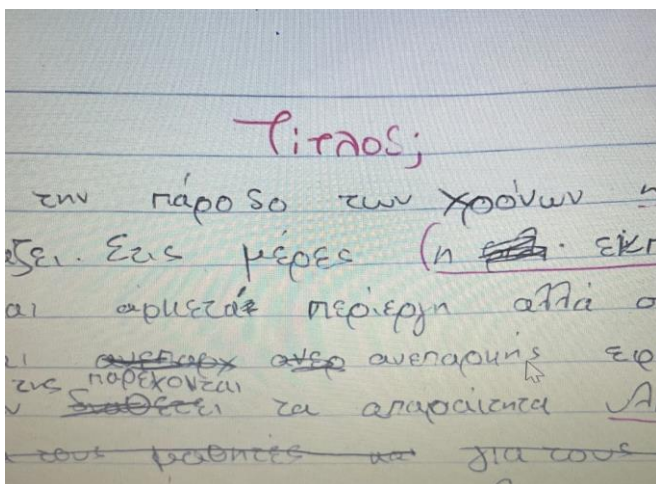 Τίτλος;
την πάροδο των χρόνων η
άξει. Στις μέρες (η
αι αρκετά περίεργη αλλά
ανεπαρχ ανεπ ανεπαρκής
της παρέχονται
τα απαραίτητα
τους μαθητές για τους